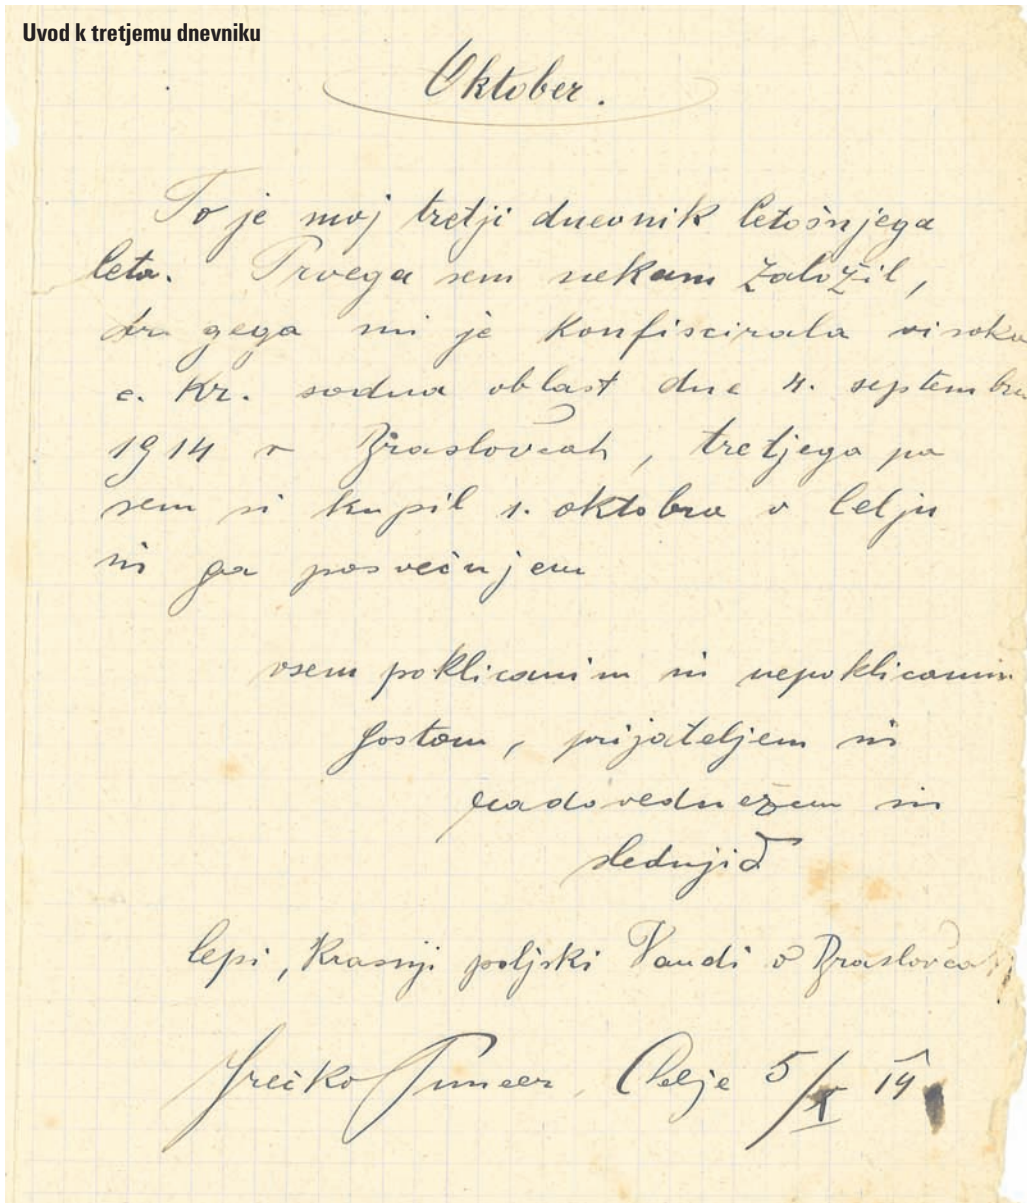 Uvod k tretjemu dnevniku
Oktober.
To je moj tretji dnevnik letošnjega
leta. Prvega sem nekam založil,
drugega mi je konfiscirala visoka
c. kr. sodna oblast dne 4. septembra
1914 v Braslovčah, tretjega pa
sem si kupil 1. oktobra v Celju
in ga posvečujem
vsem poklicanim in nepoklicanim
gostom, prijateljem in
radovednežem in
slednjič
lepi, krasnji poljski Vandi v Braslovčah
Srečko Puncer, Celje 5/X 14